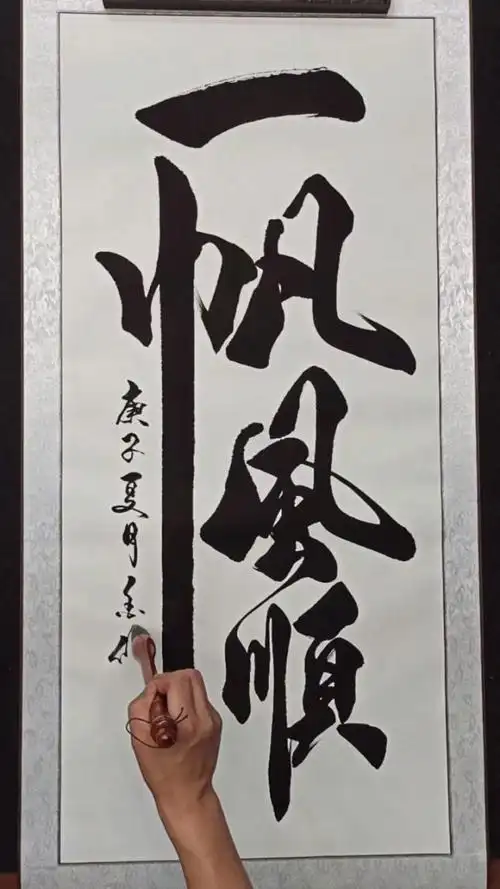 一帆風順
庚子夏月